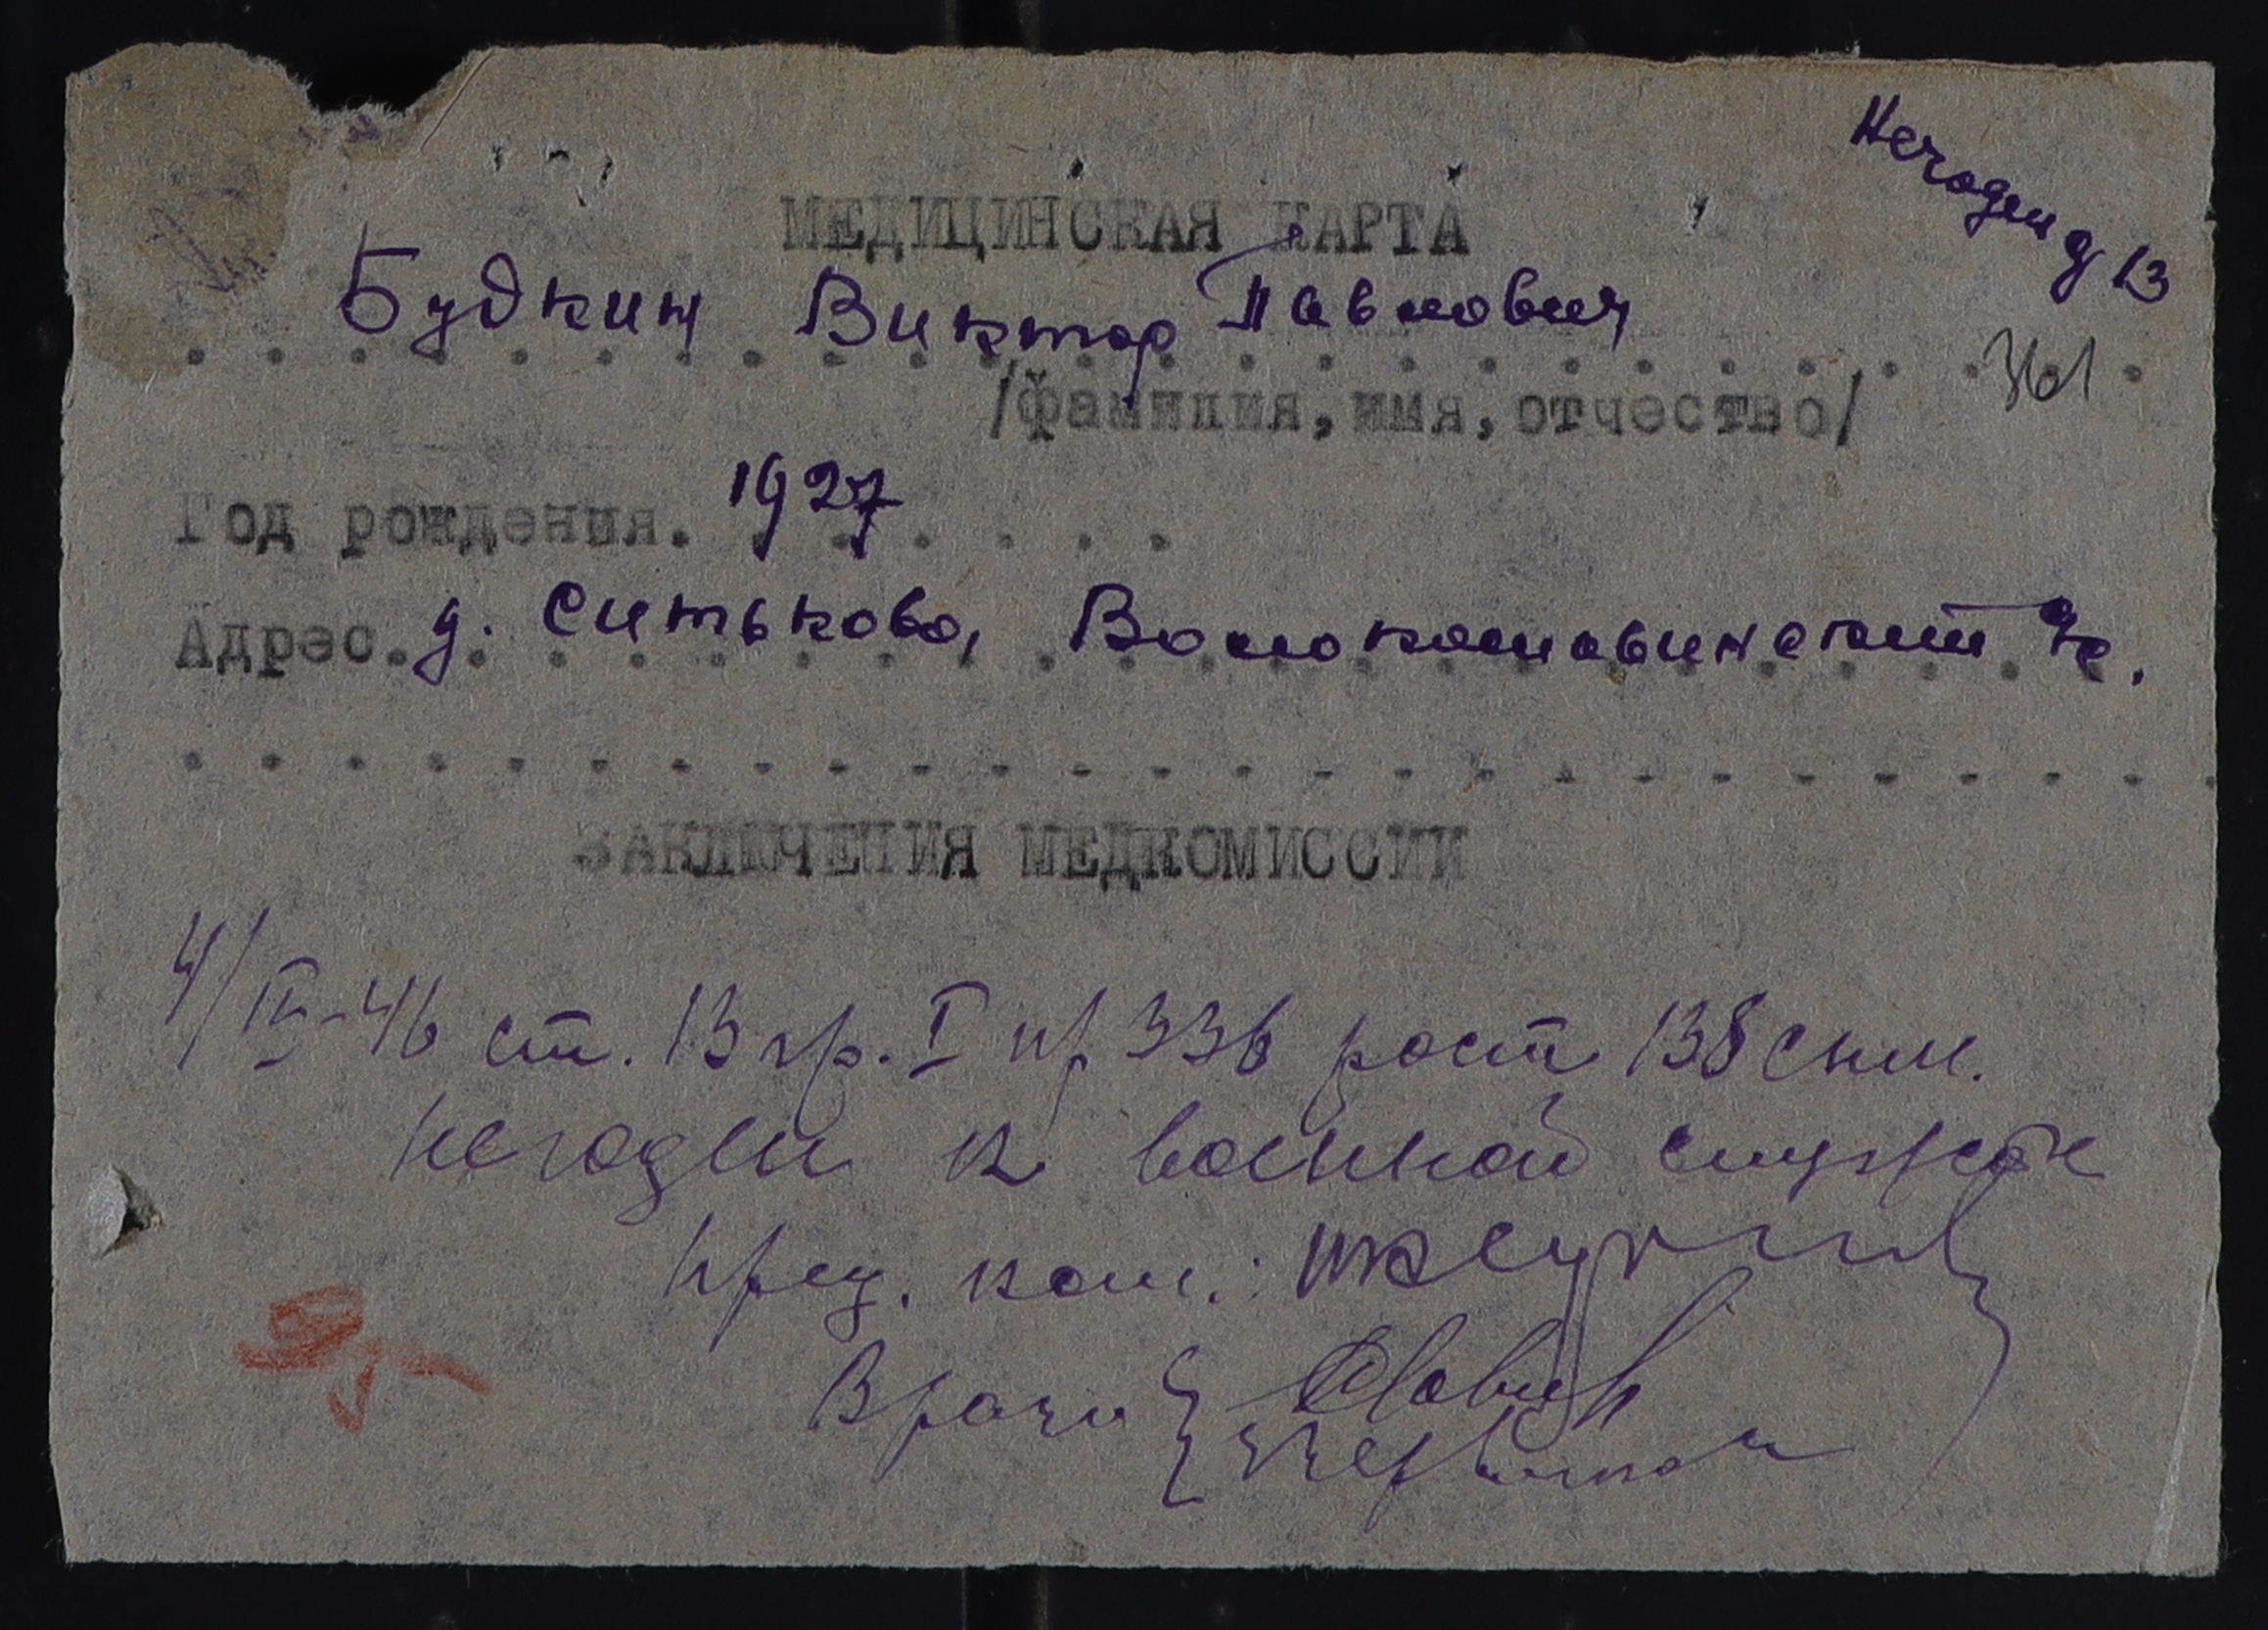 Негоден д 13
МЕДИЦИНСКАЯ КАРТА
Будкин Виктор Павлович
361
/фамилия, имя, отчество/
Год рождения. 1927
Адрес. д. Ситьково,
ЗАКЛЮЧЕНИЯ МЕДКОМИССИИ
4/III-46 ст. 13 гр. I пр 336 рост 138 снм.
негоден к военной службе
пред. ком.:
Врачи